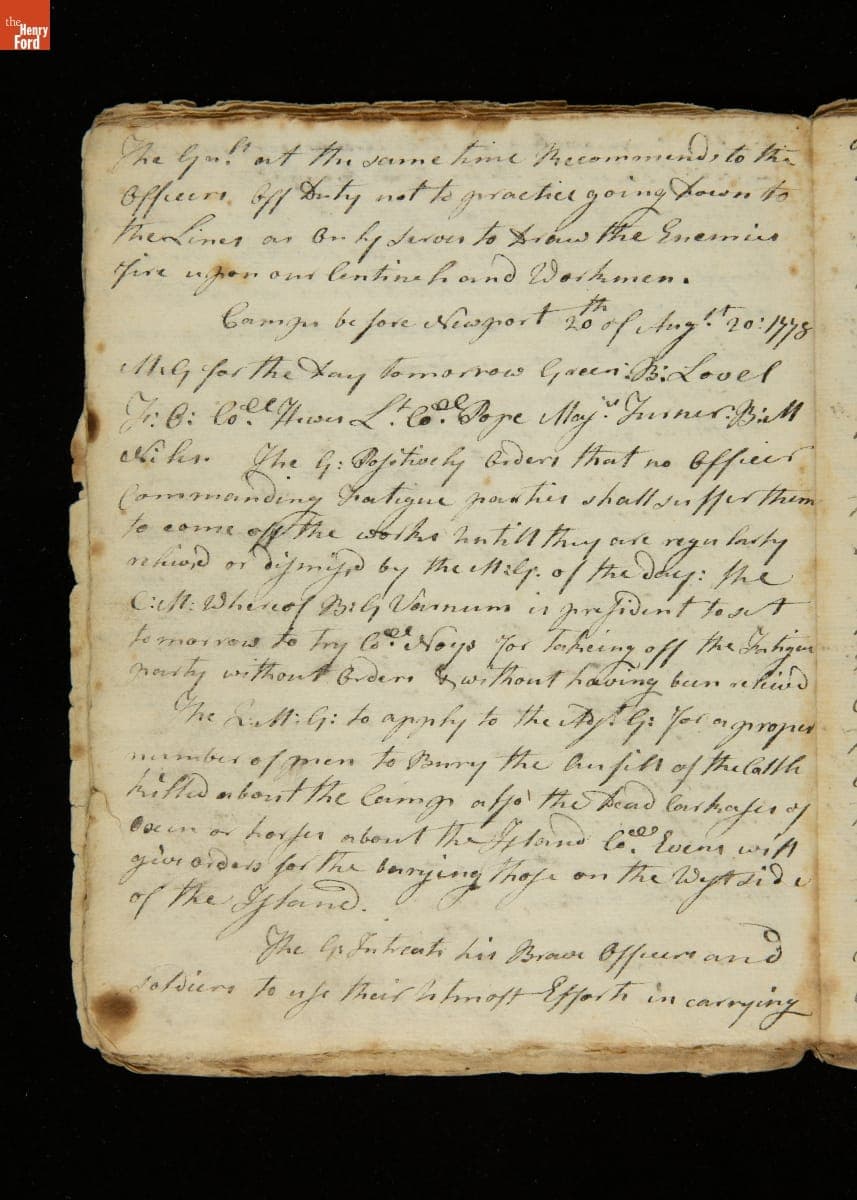 the
Henry
Ford
The Gn.ls at the same time Recommends to the
Officers Off Duty not to practice going Down to
the Lines as Only serves to Draw the Enemies
fire upon our Centinels and Workmen.
Camp before Newport 20th of Augst. 20: 1778
M:G for the Day tomorrow Green: B: Lovel
F: O: Coll. Hawes Lt. Coll. Pope Majr. Turner: B:M
The G: Positively Orders that no Officer
Commanding Fatigue parties shall suffer them
to come off the works Untill they are regularly
reliev'd or Dismis'd by the M:G. of the Day: the
C:M: Whereof B:G Varnum is president to set
tomorrow to try Coll. Noys for takeing off the Fatigue
party without Orders & without having been reliev'd
The Q:M:G: to apply to the Adjt. G: for a proper
number of men to Burry the of the Cattle
killed about the Camp also the Dead Carkases of
Oxen or horses about the Island Coll. Evens will
give orders for the burying those on the West side
of the Island.
The G: Intreats his Brave Officers and
Soldiers to use their Utmost Efforts in carrying